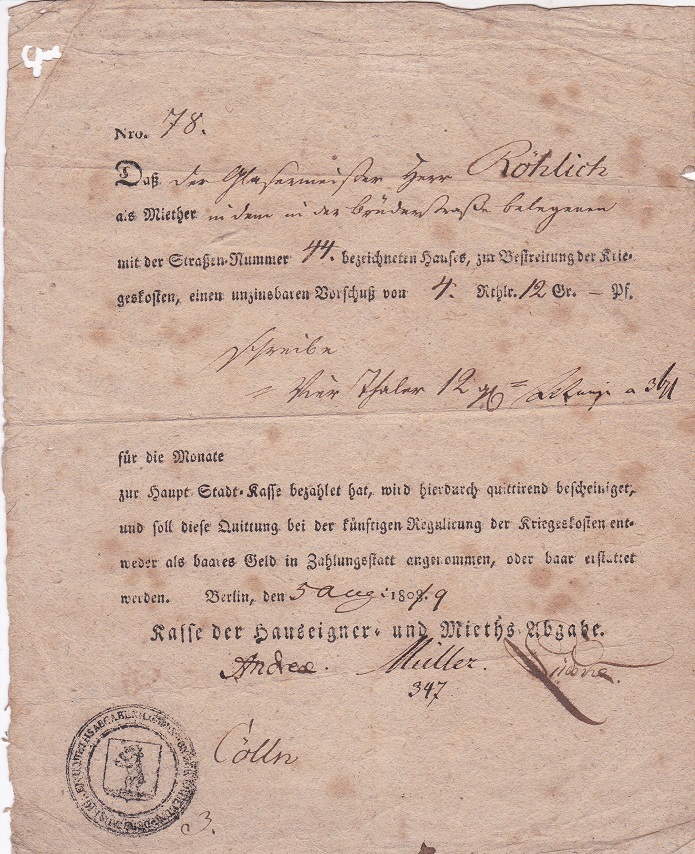 Nro. 78.
Daß der Glasermeister Herr Röhlich
als Miether in dem in der Brüderstraße belegenen
mit der Straßen-Nummer 44. bezeichneten Hauses, zur Bestreitung der Krie-
geskosten, einen unzinsbaren Vorschuß von 4. Rthlr. 12 Gr. — Pf.
schreibe
Vier Thaler 12
für die Monate
zur Haupt Stadt-Kasse bezahlet hat, wird hierdurch quittirend bescheiniget,
und soll diese Quittung bei der künftigen Regulirung der Kriegeskosten ent-
weder als baares Geld in Zahlungsstatt angenommen, oder baar erstattet
werden. Berlin, den 5 Aug: 1809
Kasse der Hauseigner- und Mieths-Abgabe.
Andreae. Müller.
347
Cölln
3.